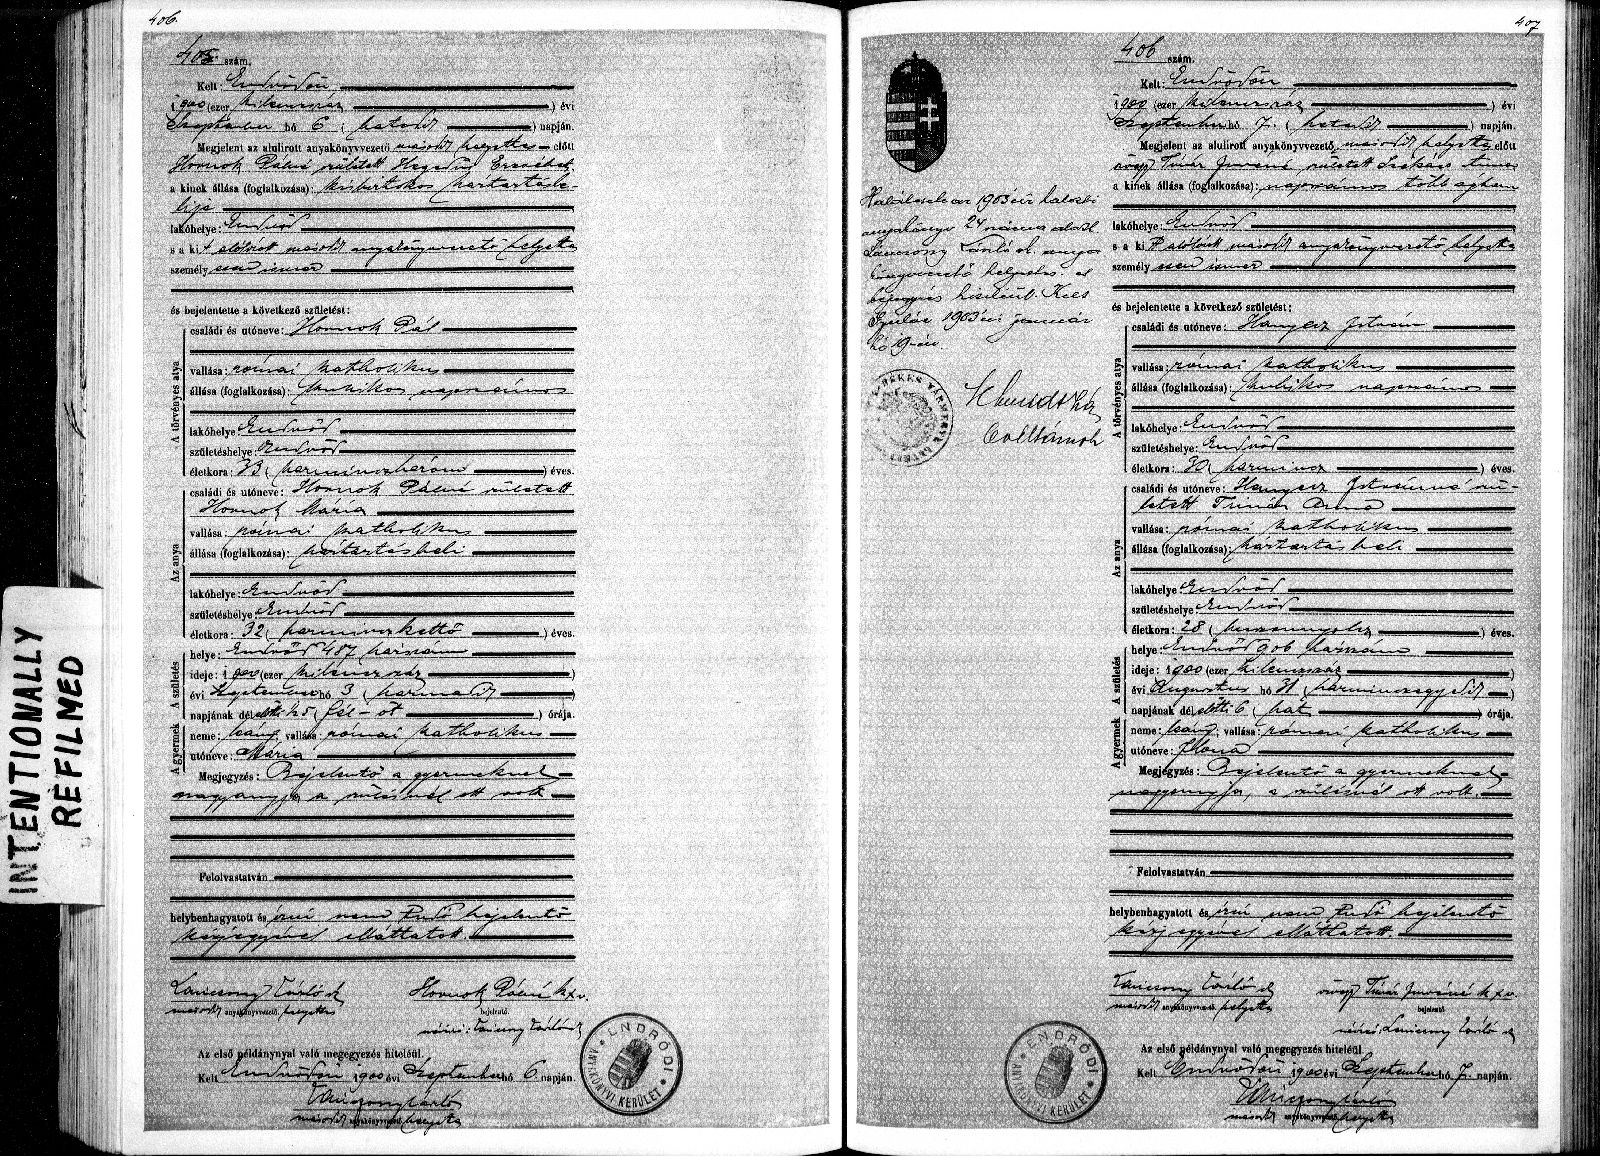 406.
405 szám.
Kelt: Endrődön
1900 (ezer kilenczszáz) évi
Szeptember hó 6 (hatodik) napján.
Megjelent az alulírott anyakönyvvezető második helyettes előtt
Hornok Pálné született Hegedűs Erzsébet
a kinek állása (foglalkozása): kisbirtokos háztartásbe-
lije
lakóhelye: Endrőd
s a kit alólírott második anyakönyvvezető helyettes
személy nem ismer
és bejelentette a következő születést:
A törvényes atya
családi és utóneve: Hornok Pál
vallása: római katholikus
állása (foglalkozása): kubikos napszámos
lakóhelye: Endrőd
születéshelye: Endrőd
életkora: 33 (harminczhárom) éves.
Az anya
családi és utóneve: Hornok Pálné született
Hornok Mária
vallása: római katholikus
állása (foglalkozása): háztartásbeli
lakóhelye: Endrőd
születéshelye: Endrőd
életkora: 32 (harminczkettő) éves.
A születés
helye: Endrőd 487 házszám
ideje: 1900 (ezer kilenczszáz)
évi Szeptember hó 3 (harmadik)
napjának délelőtti ½5 (fél-öt) órája.
A gyermek
neme: leány, vallása: római katholikus
utóneve: Mária
Megjegyzés: Bejelentő a gyermeknek
nagyanyja a szülésnél ott volt
Felolvastatván
helybenhagyatott és írni nem tudó bejelentő
kézjegyével elláttatott.
második anyakönyvvezető helyettes
Hornok Pálné k x v.
bejelentő.
Az első példánynyal való megegyezés hiteléül.
Kelt Endrődön 1900 évi Szeptember hó 6 napján.
második anyakönyvvezető helyettes
ENDRŐDI ANYAKÖNYVI KERÜLET
INTENTIONALLY
REFILMED
407
406 szám.
Kelt: Endrődön
1900 (ezer kilenczszáz) évi
Szeptember hó 7. (hetedik) napján.
Megjelent az alulírott anyakönyvvezető második helyettes előtt
özvegy Tímár született
a kinek állása (foglalkozása): napszámos
lakóhelye: Endrőd
s a kit alólírott második anyakönyvvezető helyettes
személy nem ismer
és bejelentette a következő születést:
A törvényes atya
családi és utóneve: Hanyecz István
vallása: római katholikus
állása (foglalkozása): kubikos napszámos
lakóhelye: Endrőd
születéshelye: Endrőd
életkora: 30 (harmincz) éves.
Az anya
családi és utóneve: Hanyecz Istvánné szü-
letett Tímár Anna
vallása: római katholikus
állása (foglalkozása): háztartásbeli
lakóhelye: Endrőd
születéshelye: Endrőd
életkora: 28 (huszonnyolcz) éves.
A születés
helye: Endrőd 906 házszám
ideje: 1900 (ezer kilenczszáz)
évi Augusztus hó 31 (harminczegyedik)
napjának délelőtti 6 (hat) órája.
A gyermek
neme: leány, vallása: római katholikus
utóneve: Ilona
Megjegyzés: Bejelentő a gyermeknek
nagyanyja, a szülésnél ott volt.
Felolvastatván
helybenhagyatott és írni nem tudó bejelentő
kézjegyével elláttatott.
második anyakönyvvezető helyettes
özvegy Tímár k x v.
bejelentő
Az első példánynyal való megegyezés hiteléül
Kelt Endrődön 1900 évi Szeptember hó 7. napján.
második anyakönyvvezető helyettes
ENDRŐDI ANYAKÖNYVI KERÜLET
1903 évi halotti
anyakönyv 24
helyettes
bejegyzés hiteléül. Kelt
Gyulán 1903 évi január
hó 19-én.
BÉKÉS VÁRMEGYE